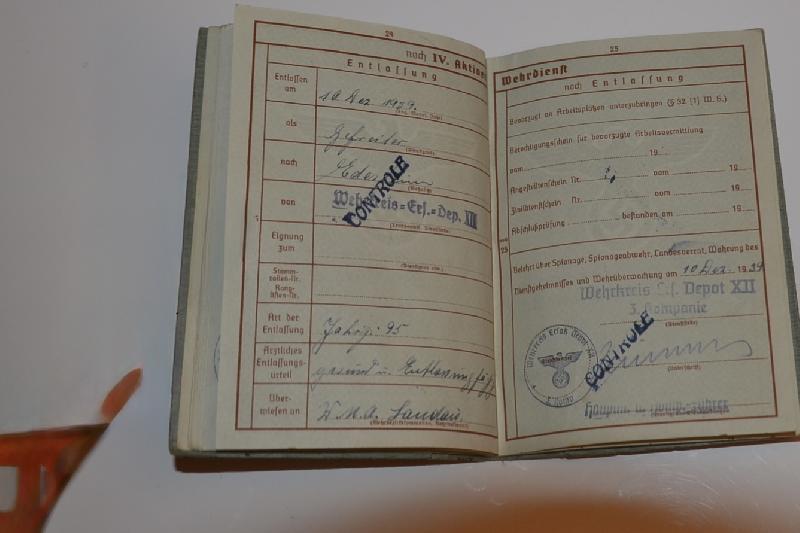 24
nach IV. Aktiven
Entlassung
Entlassen am
10. Dez. 1939.
als
Gefreiter
(Dienstgrad)
nach
CONTROLE
von
Wehrkreis-Ers.-Dep. XII
Eignung zum
Stamm-rollen-Nr.
Rang-listen-Nr.
Art der Entlassung
Jahrg. 95
Ärztliches Entlassungs-urteil
gesund u. Entlassungsfäh
Über-wiesen an
W.M.A. Landau.
25
Wehrdienst
nach Entlassung
Bevorzugt an Arbeitsplätzen unterzubringen (§ 32 [1] W. G.)
Berechtigungsschein für bevorzugte Arbeitsvermittlung
vom 19
Angestelltenschein Nr. vom 19
Zivildienstschein Nr. vom 19
Abschlußprüfung bestanden am 19
Belehrt über Spionage, Spionageabwehr, Landesverrat, Wahrung des
Dienstgeheimnisses und Wehrüberwachung am 10. Dez. 1939
Wehrkreis Ers. Depot XII
3. Kompanie
(Dienststelle)
CONTROLE
(Unterschrift)